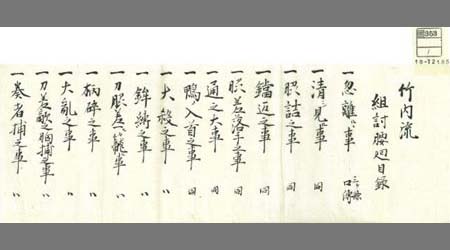 竹内流
組討腰廻目録
一忽離之事 口傳
一清見之事 同
一眼詰之事 同
一鐺返之事 同
一脇差落手之事 同
一通之大事 同
一鴨ノ入首之事 同
一大殺之事 〃
一鉾縛之事 〃
一刀脇差籠事 〃
一柄碎之事 〃
一大亂之事 〃
一刀差敵之胸捕之事 〃
一奏者捕之事 〃
353
1